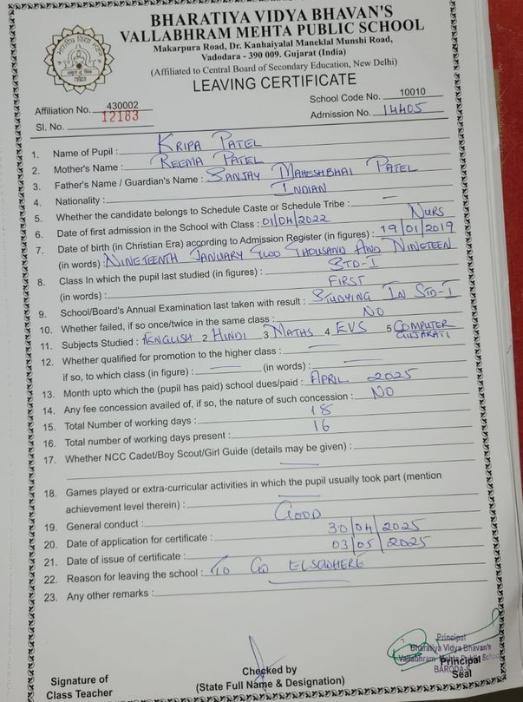 BHARATIYA VIDYA BHAVAN'S
VALLABHRAM MEHTA PUBLIC SCHOOL
Makarpura Road, Dr. Kanhaiyalal Maneklal Munshi Road,
Vadodara - 390 009. Gujarat (India)
(Affiliated to Central Board of Secondary Education, New Delhi)
LEAVING CERTIFICATE
Affiliation No. 430002 School Code No. 10010
Sl. No. 12183 Admission No. 14405
1. Name of Pupil : KRIPA PATEL
2. Mother's Name : REEMA PATEL
3. Father's Name / Guardian's Name : SANJAY MAHESHBHAI PATEL
4. Nationality : INDIAN
5. Whether the candidate belongs to Schedule Caste or Schedule Tribe : —
6. Date of first admission in the School with Class : 01/04/2022 NURS
7. Date of birth (in Christian Era) according to Admission Register (in figures) : 19/01/2019
(in words) NINETEENTH JANUARY TWO THOUSAND AND NINETEEN
8. Class In which the pupil last studied (in figures) : STD-I
(in words) : FIRST
9. School/Board's Annual Examination last taken with result : STUDYING IN STD-I
10. Whether failed, if so once/twice in the same class : NO
11. Subjects Studied : 1 ENGLISH 2 HINDI 3 MATHS 4 EVS 5 COMPUTER
GUJARATI
12. Whether qualified for promotion to the higher class : —
if so, to which class (in figure) : — (in words) : —
13. Month upto which the (pupil has paid) school dues/paid : APRIL 2025
14. Any fee concession availed of, if so, the nature of such concession : NO
15. Total Number of working days : 18
16. Total number of working days present : 16
17. Whether NCC Cadet/Boy Scout/Girl Guide (details may be given) :
—
18. Games played or extra-curricular activities in which the pupil usually took part (mention
achievement level therein) : —
19. General conduct : GOOD
20. Date of application for certificate : 30/04/2025
21. Date of issue of certificate : 03/05/2025
22. Reason for leaving the school : TO GO ELSEWHERE
23. Any other remarks : —
Signature of
Class Teacher
Checked by
(State Full Name & Designation)
Principal
Bharatiya Vidya Bhavan's
Vallabhram Mehta Public School
BARODA
Principal
Seal